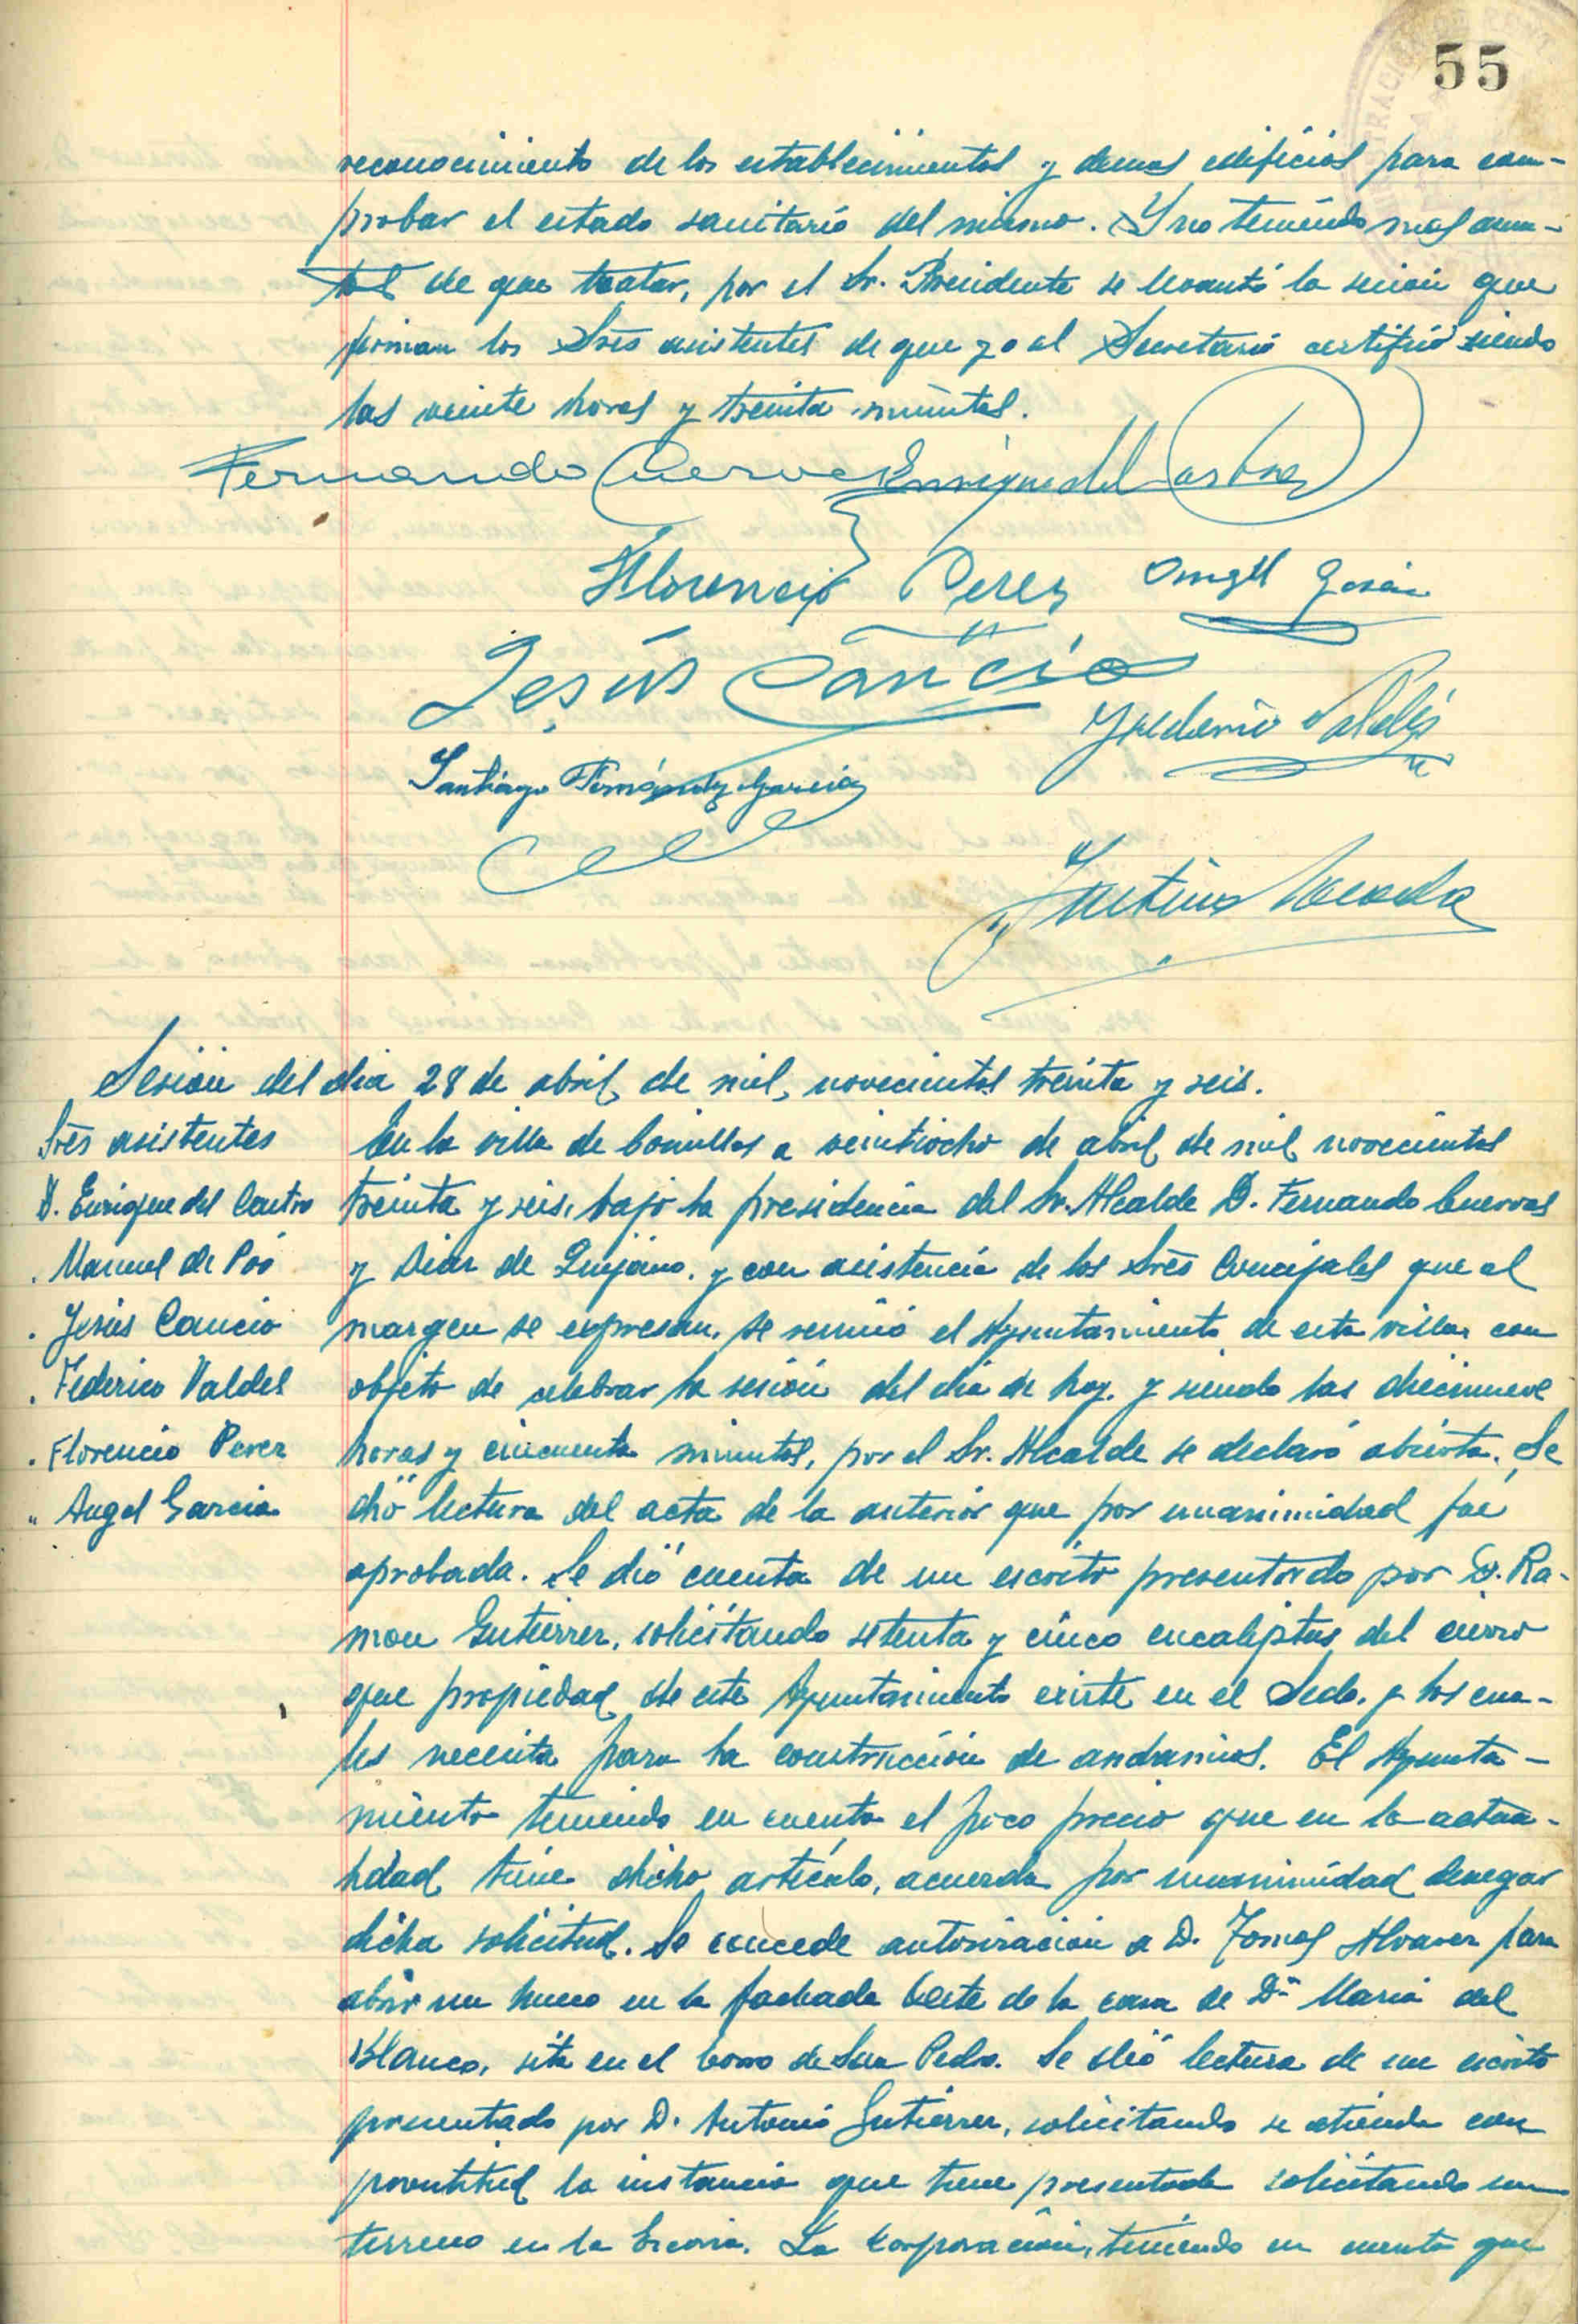 55
reconocimiento de los establecimientos y demas edificios para com-
probar el estado sanitario del mismo. Y no teniendo mas asun-
tos de que tratar, por el Sr. Presidente se levantó la sesión que
firman los Sres asistentes de que yo el Secretario certifico siendo
las veinte horas y treinta minutos.
Fernando Cuervas Enrique del Castro
Florencio Perez Angel García
Jesús Cancio
Federico Valdés
Santiago Fernández García
Sesión del dia 28 de abril de mil novecientos treinta y seis.
Sres asistentes
D. Enrique del Castro
. Manuel de Poó
. Jesús Cancio
. Federico Valdes
. Florencio Perez
" Angel Garcia
En la villa de Comillas a veintiocho de abril de mil novecientos
treinta y seis, bajo la presidencia del Sr. Alcalde D. Fernando Cuervas
y Diaz de Quijano, y con asistencia de los Sres Concejales que al
margen se expresan, se reunió el Ayuntamiento de esta villa, con
objeto de celebrar la sesión del dia de hoy. y siendo las diecinueve
horas y cincuenta minutos, por el Sr. Alcalde se declaró abierta. Se
dió lectura del acta de la anterior que por unanimidad fue
aprobada. Se dió cuenta de un escrito presentado por D. Ra-
mon Gutierrez, solicitando setenta y cinco eucaliptus del cierro
que propiedad de este Ayuntamiento existe en el Sedo, y los cua-
les necesita para la construcción de andamios. El Ayunta-
miento teniendo en cuenta el poco precio que en la actua-
lidad tiene dicho artículo, acuerda por unanimidad denegar
dicha solicitud. Se concede autorización a D. Tomas Alvarez para
abrir un hueco en la fachada Oeste de la casa de Dª Maria del
Blanco, sita en el Corro de San Pedro. Se dió lectura de un escrito
presentado por D. Antonio Gutierrez, solicitando se atienda con
prontitud la instancia que tiene presentada solicitando un
terreno en la. La Corporación, teniendo en cuenta que